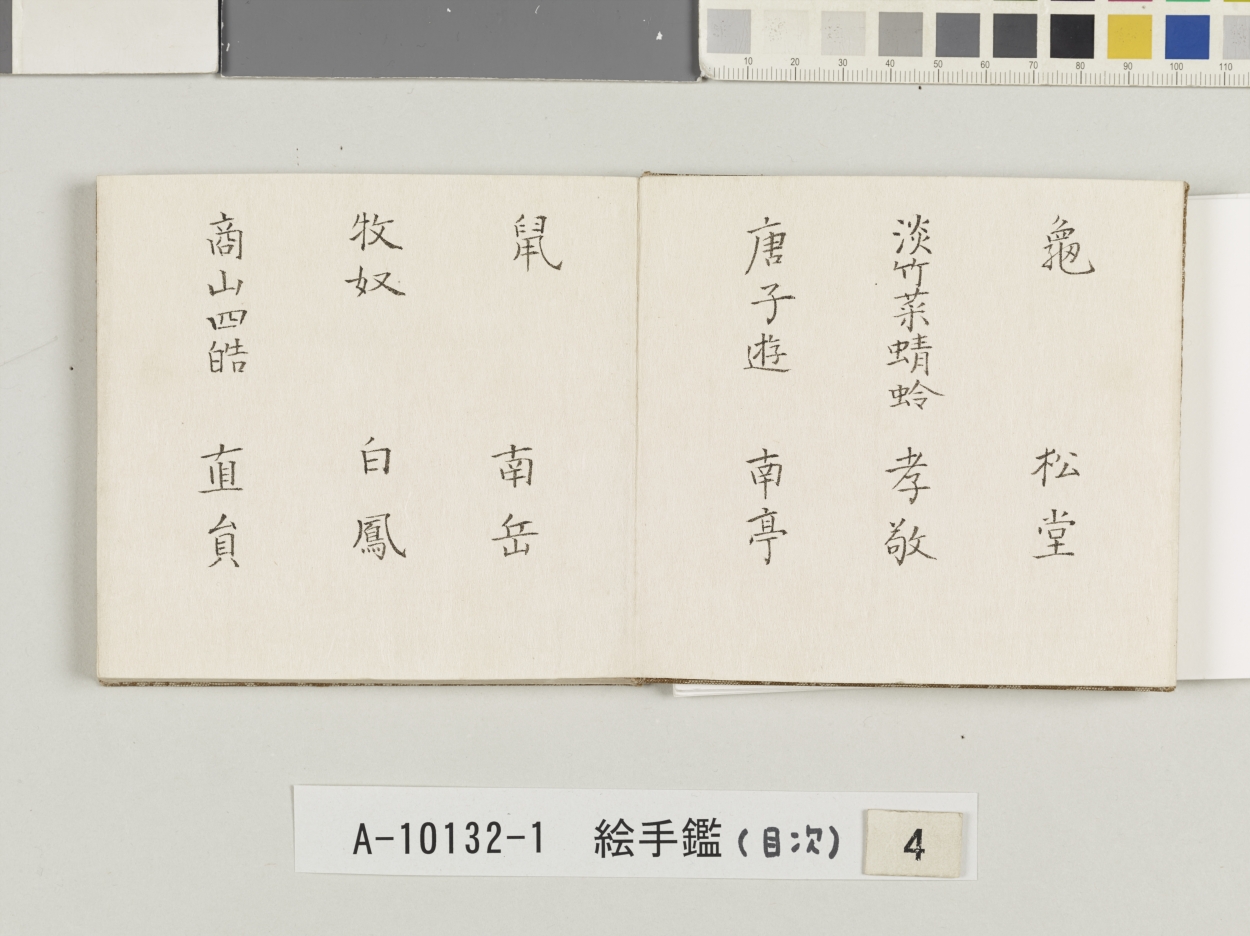 龜 松堂
淡竹菜蜻蛉 孝敬
唐子遊 南亭
鼠 南岳
牧奴 白鳳
商山四皓 直員
A-10132-1 絵手鑑(目次) 4
10 20 30 40 50 60 70 80 90 100 110